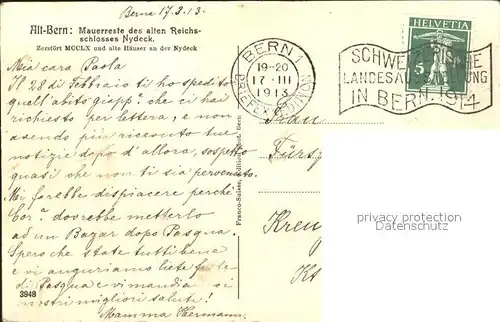 Berna 17.3.13.
Alt-Bern: Mauerreste des alten Reichs-
schlosses Nydeck.
Zerstört MCCLX und alte Häuser an der Nydeck
HELVETIA
BERN 1
19-20
17 III
1913
BRIEFEXPEDITION
SCHWEIZERISCHE
LANDESAUSSTELLUNG
IN BERN. 1914
Mia cara Paola
Il 28 di Febbraio ti ho spedito
quell'abito giusto che ci hai
richiesto per lettera, e non
avendo più ricevuto tue
notizie dopo d'allora, sospetto
quasi che non ti sia pervenuto.
Mi farebbe dispiacere perchè
dovrebbe metterlo
ad un Bazar dopo Pasqua.
Spero che state tutti bene
e vi auguriamo liete feste
di Pasqua e vi mandiamo i
nostri migliori saluti!
Mamma Hermann.
Frau
Fürs
Kreu
Kt
Franco-Suisse, Editions, Bern
3948
privacy protection
Datenschutz